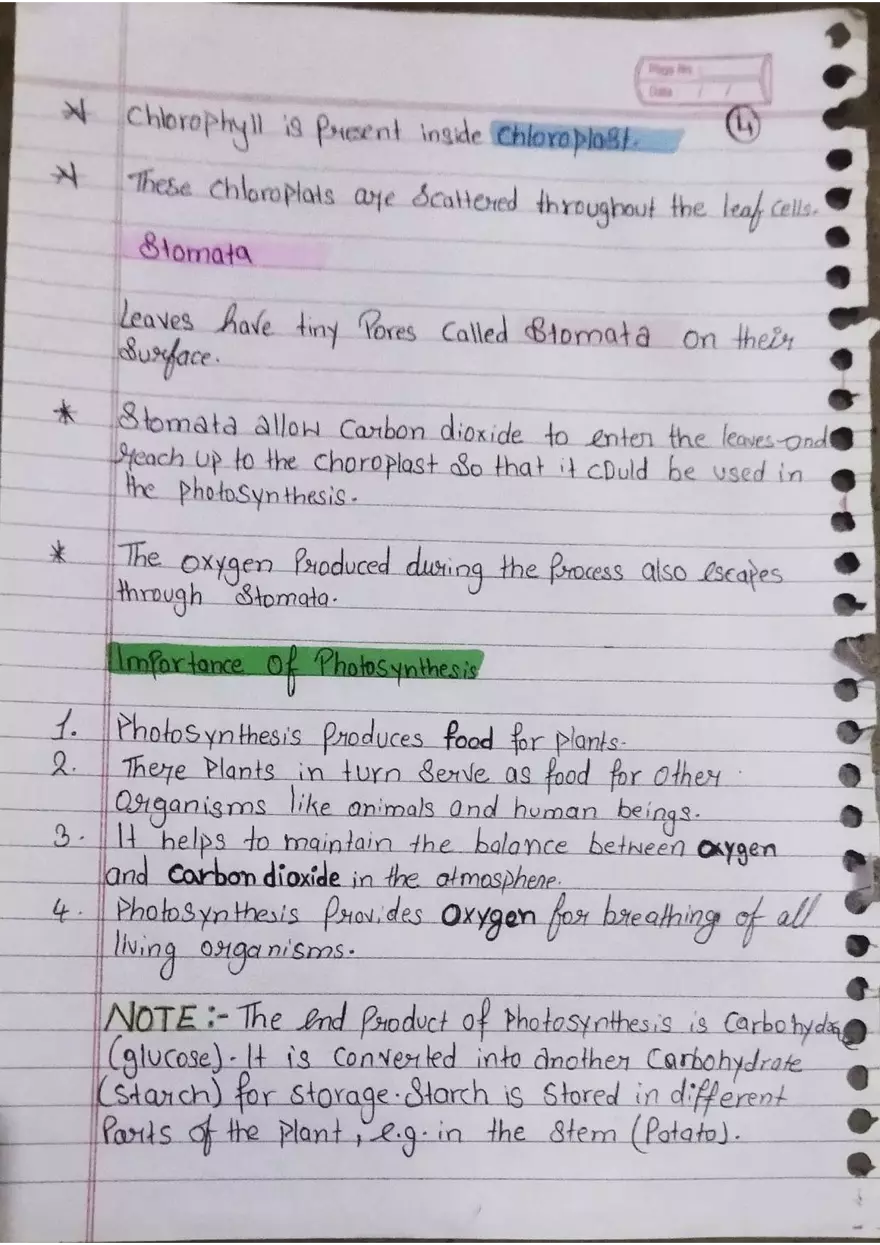 Page No.
Date / /
4
* Chlorophyll is present inside Chloroplast.
* These Chloroplats are Scattered throughout the leaf cells.
Stomata
Leaves have tiny Pores Called Stomata on their
Surface.
* Stomata allow Carbon dioxide to enter the leaves and
reach up to the choroplast So that it could be used in
the photosynthesis.
* The oxygen Produced during the Process also escapes
through Stomata.
Importance of Photosynthesis
1. Photosynthesis Produces food for plants.
2. There Plants in turn Serve as food for other
organisms like animals and human beings.
3. It helps to maintain the balance between oxygen
and Carbon dioxide in the atmosphere.
4. Photosynthesis Provides Oxygen for breathing of all
living organisms.
NOTE :- The end Product of Photosynthesis is Carbohyd
(glucose). It is converted into another Carbohydrate
(Starch) for storage. Starch is Stored in different
Parts of the plant, e.g. in the Stem (Potato).